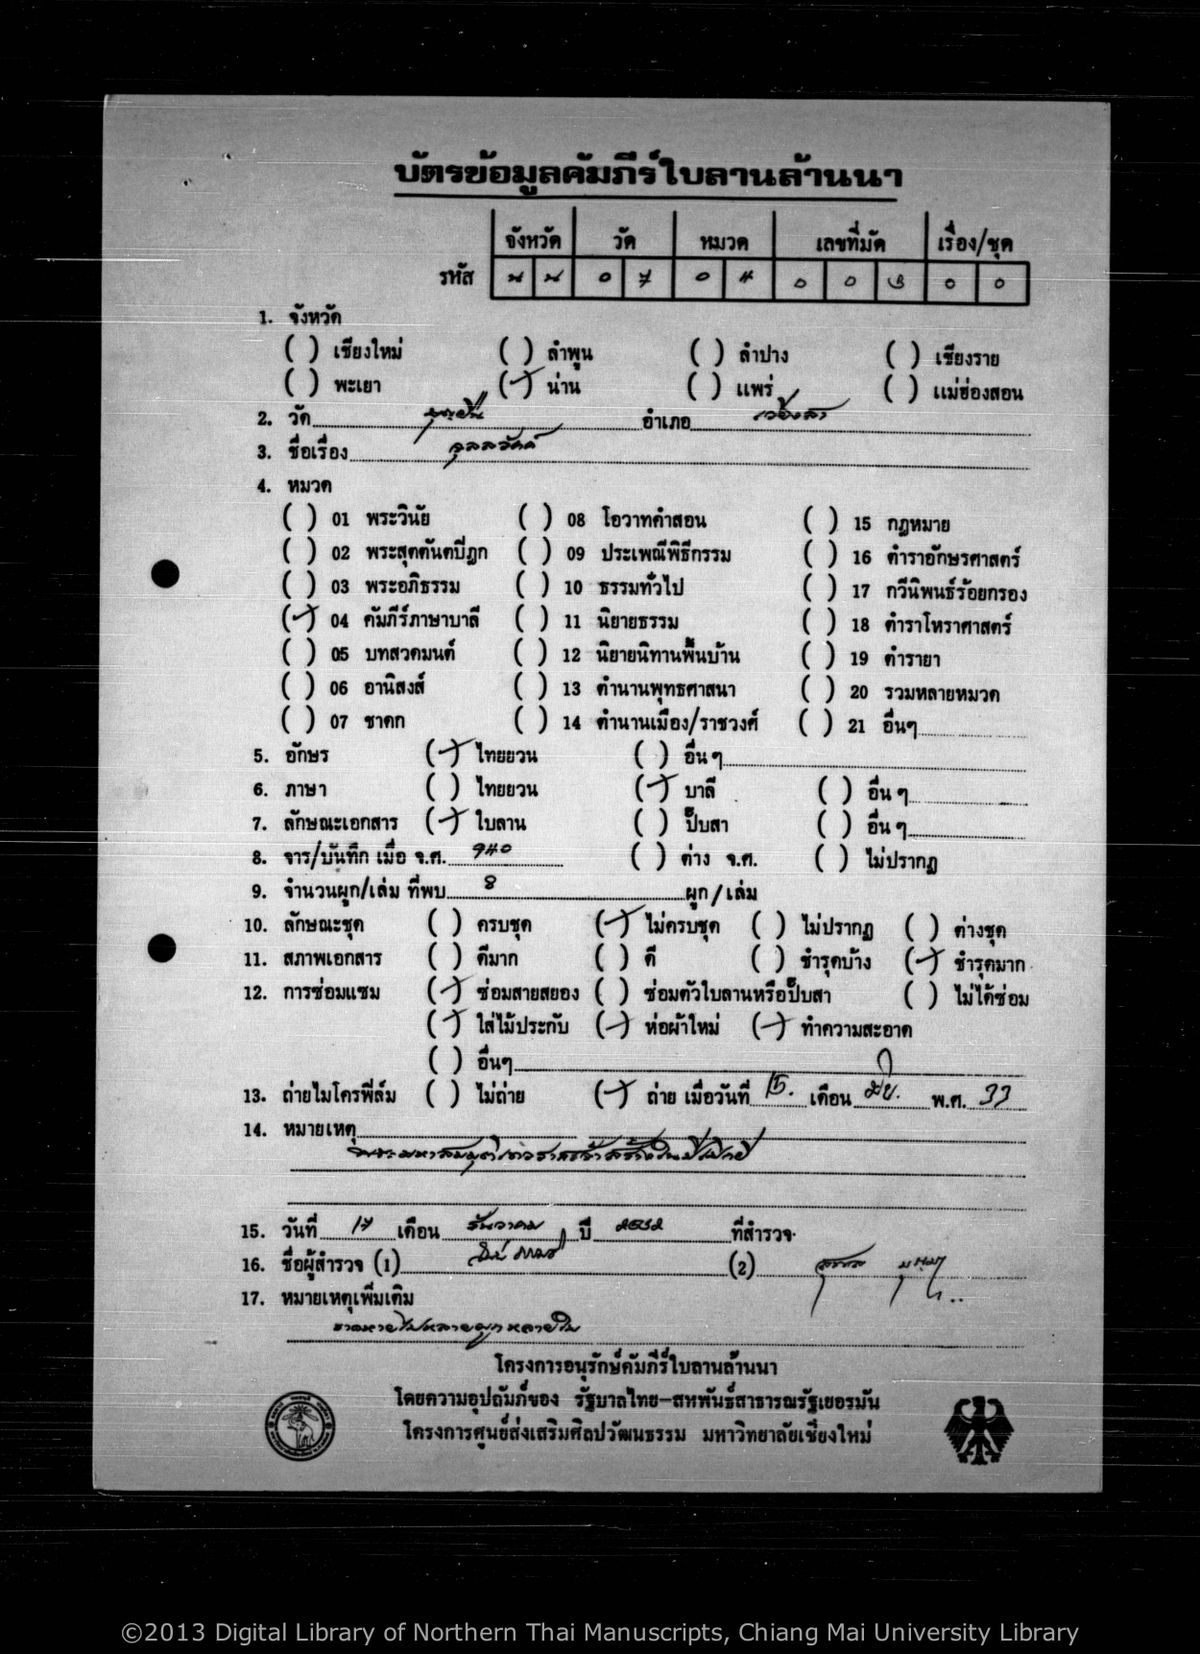 บัตรข้อมูลคัมภีร์ใบลานล้านนา
จังหวัด วัด หมวด เลขที่มัด เรื่อง/ชุด
รหัส น น 0 7 0 4 0 0 3 0 0
1. จังหวัด
( ) เชียงใหม่ ( ) ลำพูน ( ) ลำปาง ( ) เชียงราย
( ) พะเยา (✓) น่าน ( ) แพร่ ( ) แม่ฮ่องสอน
2. วัด บุญยืน อำเภอ เวียงสา
3. ชื่อเรื่อง จุลลวัคค์
4. หมวด
( ) 01 พระวินัย ( ) 08 โอวาทคำสอน ( ) 15 กฎหมาย
( ) 02 พระสุตตันตปิฎก ( ) 09 ประเพณีพิธีกรรม ( ) 16 ตำราอักษรศาสตร์
( ) 03 พระอภิธรรม ( ) 10 ธรรมทั่วไป ( ) 17 กวีนิพนธ์ร้อยกรอง
(✓) 04 คัมภีร์ภาษาบาลี ( ) 11 นิยายธรรม ( ) 18 ตำราโหราศาสตร์
( ) 05 บทสวดมนต์ ( ) 12 นิยายนิทานพื้นบ้าน ( ) 19 ตำรายา
( ) 06 อานิสงส์ ( ) 13 ตำนานพุทธศาสนา ( ) 20 รวมหลายหมวด
( ) 07 ชาดก ( ) 14 ตำนานเมือง/ราชวงศ์ ( ) 21 อื่นๆ
5. อักษร (✓) ไทยยวน ( ) อื่น ๆ
6. ภาษา ( ) ไทยยวน (✓) บาลี ( ) อื่น ๆ
7. ลักษณะเอกสาร (✓) ใบลาน ( ) ปั๊บสา ( ) อื่น ๆ
8. จาร/บันทึก เมื่อ จ.ศ. 940 ( ) ต่าง จ.ศ. ( ) ไม่ปรากฏ
9. จำนวนผูก/เล่ม ที่พบ 8 ผูก/เล่ม
10. ลักษณะชุด ( ) ครบชุด (✓) ไม่ครบชุด ( ) ไม่ปรากฏ ( ) ต่างชุด
11. สภาพเอกสาร ( ) ดีมาก ( ) ดี ( ) ชำรุดบ้าง (✓) ชำรุดมาก
12. การซ่อมแซม (✓) ซ่อมสายสยอง ( ) ซ่อมตัวใบลานหรือปั๊บสา ( ) ไม่ได้ซ่อม
(✓) ใส่ไม้ประกับ (✓) ห่อผ้าใหม่ (✓) ทำความสะอาด
( ) อื่นๆ
13. ถ่ายไมโครฟิล์ม ( ) ไม่ถ่าย (✓) ถ่าย เมื่อวันที่ 15. เดือน มิย. พ.ศ. 33
14. หมายเหตุ
15. วันที่ 17 เดือน ธันวาคม ปี 2532 ที่สำรวจ
16. ชื่อผู้สำรวจ (1) (2)
17. หมายเหตุเพิ่มเติม
ขาดหายไปหลายผูก หลายใบ
โครงการอนุรักษ์คัมภีร์ใบลานล้านนา
โดยความอุปถัมภ์ของ รัฐบาลไทย-สหพันธ์สาธารณรัฐเยอรมัน
โครงการศูนย์ส่งเสริมศิลปวัฒนธรรม มหาวิทยาลัยเชียงใหม่
©2013 Digital Library of Northern Thai Manuscripts, Chiang Mai University Library